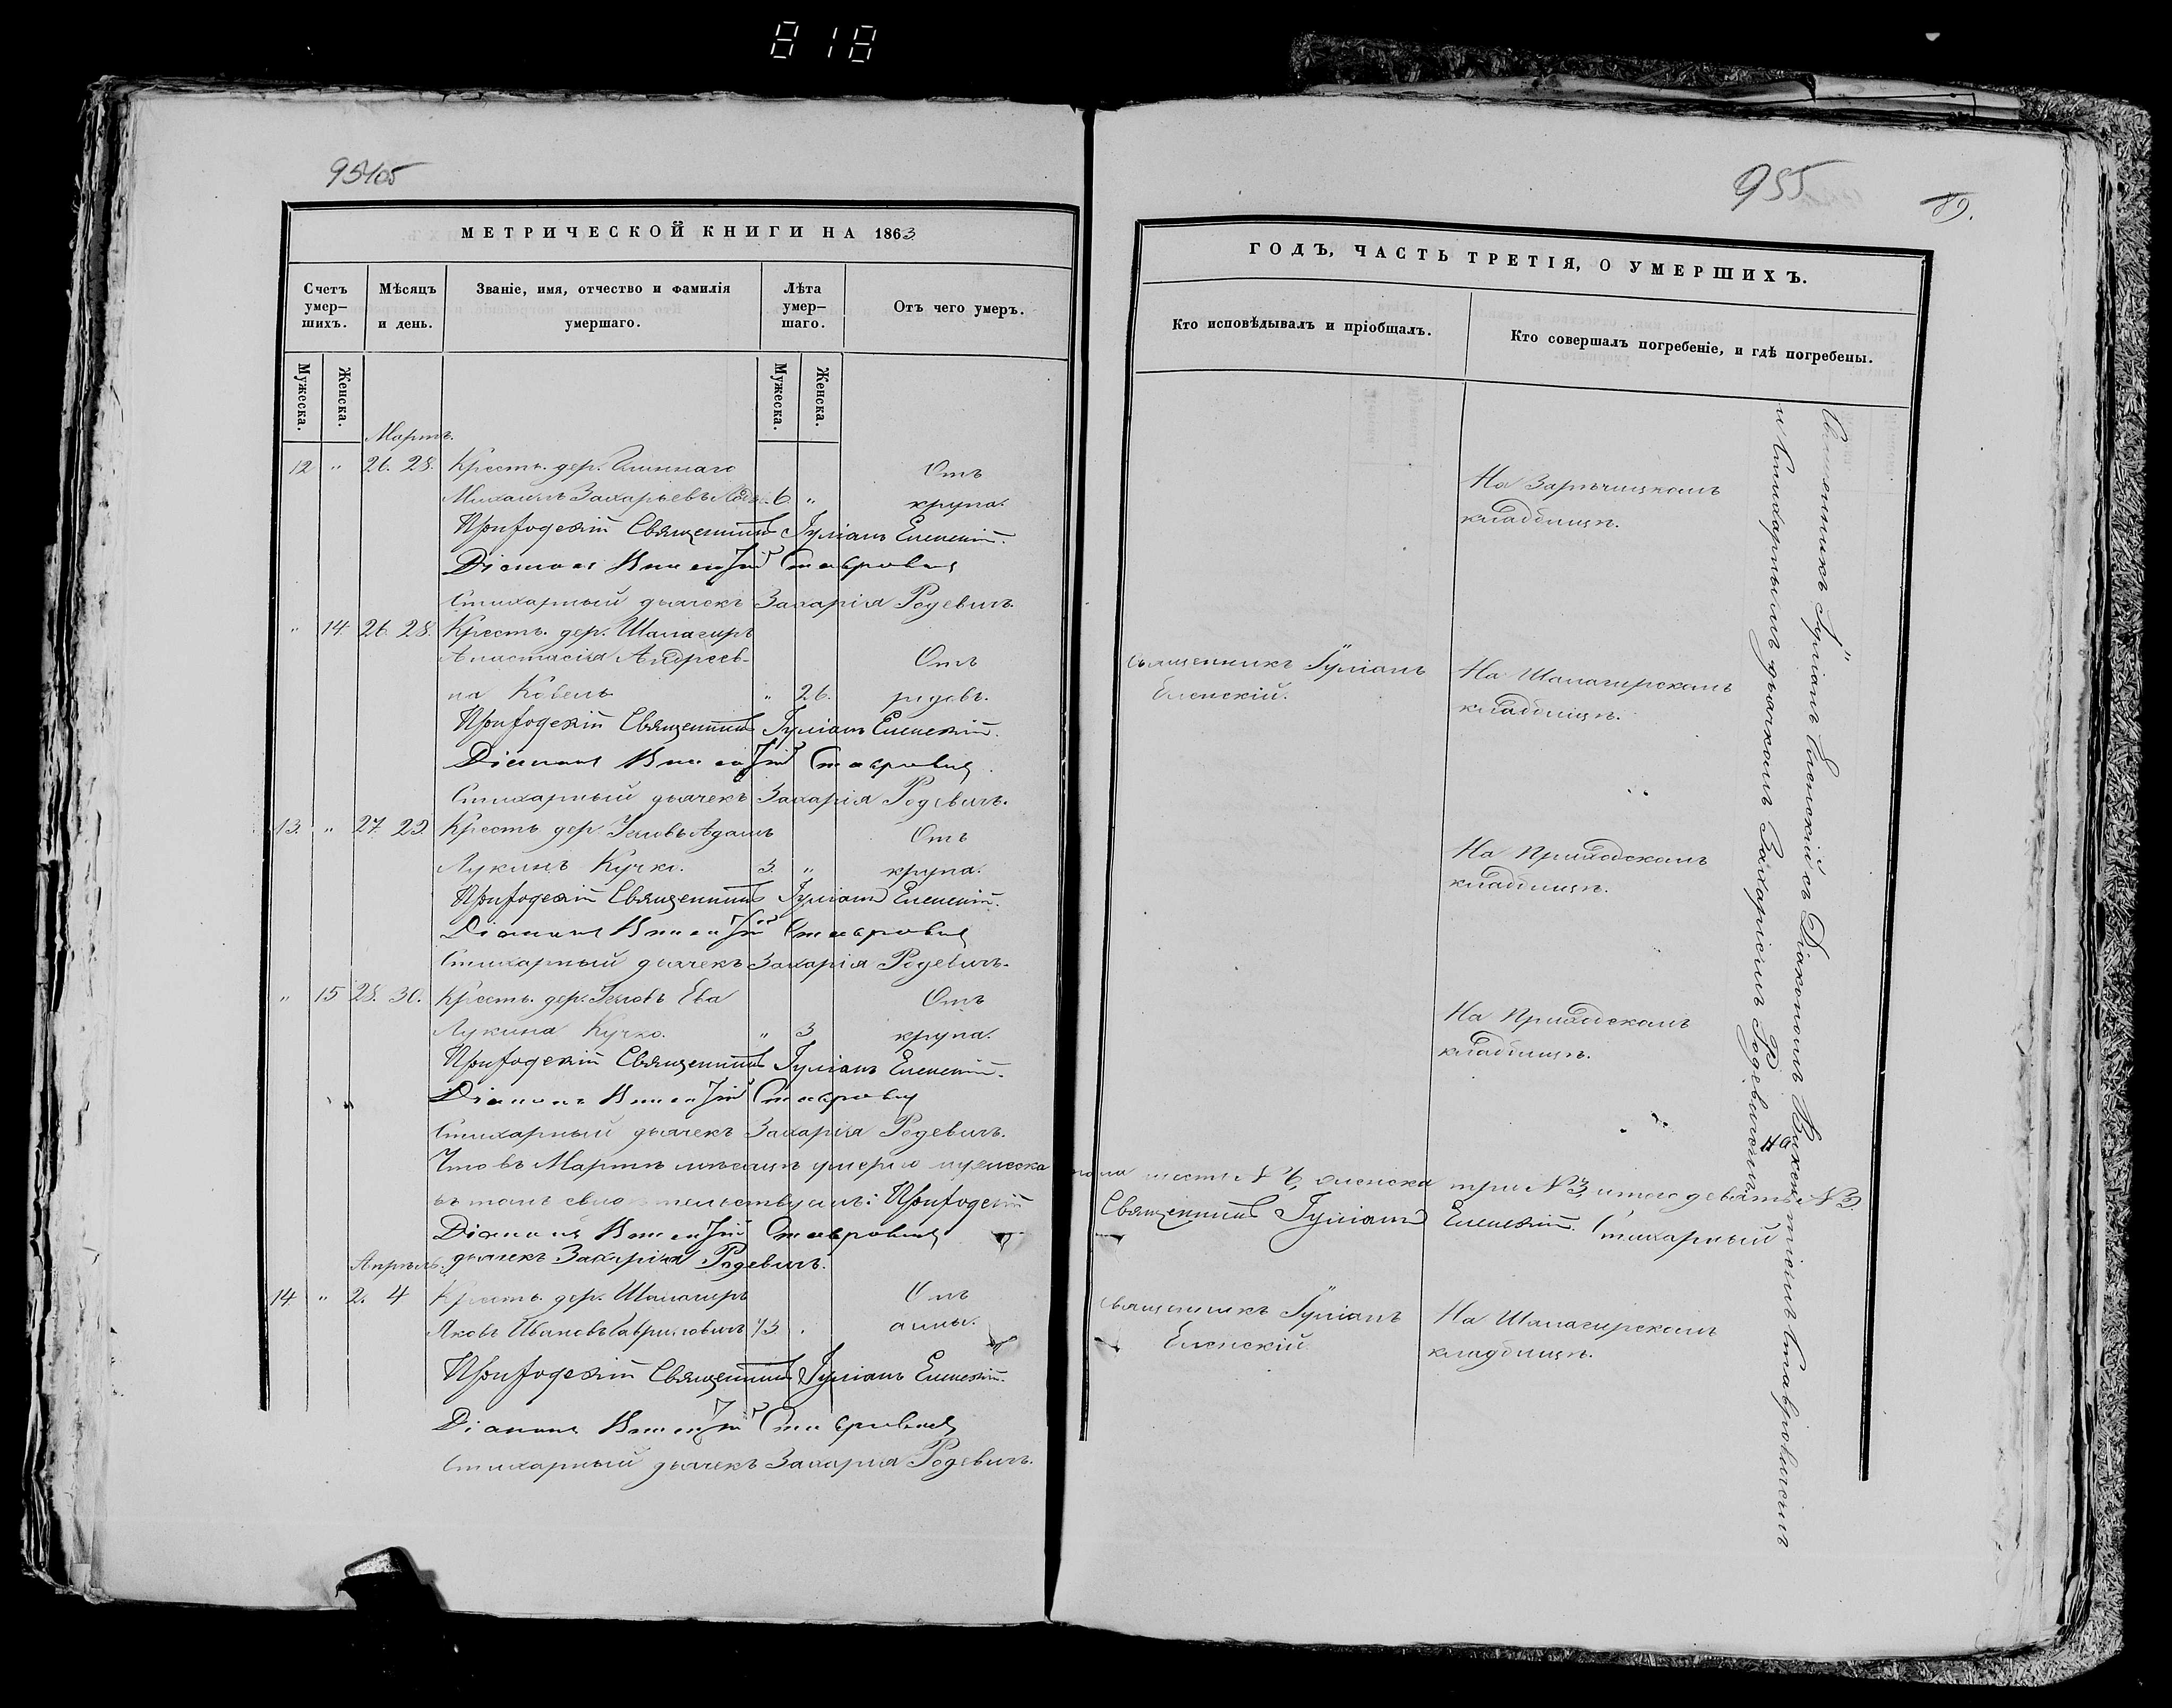 818
95405
МЕТРИЧЕСКОЙ КНИГИ НА 1863
Счетъ умер-шихъ.
Мѣсяцъ и день.
Званіе, имя, отчество и фамилія умершаго.
Лѣта умер-шаго.
Отъ чего умеръ.
Мужеска.
Женска.
Мужеска.
Женска.
Мартъ.
12 " 26. 28. Крестъ. дер. Отъ
Михаилъ Захарьевъ 6 " крупа.
Приходскій Священникъ Іуліанъ Еленскій.
Діаконъ Викентій Ставровичъ
Стихарный дьячекъ Захарія Родевичъ.
" 14 26. 28. Крестъ. дер. Шалагиръ
Анастасія Андреев- Отъ
на Кобель " 26. родовъ.
Приходскій Священникъ Іуліанъ Еленскій.
Діаконъ Викентій Ставровичъ
Стихарный дьячекъ Захарія Родевичъ.
13. " 27. 29. Крестъ. дер. Адамъ Отъ
Лукинъ Кучко. 3. " крупа.
Приходскій Священникъ Іуліанъ Еленскій.
Діаконъ Викентій Ставровичъ
Стихарный дьячекъ Захарія Родевичъ.
" 15 28. 30. Крестъ. дер. Ева Отъ
Лукина Кучко. " 3 крупа.
Приходскій Священникъ Іуліанъ Еленскій.
Діаконъ Викентій Ставровичъ
Стихарный дьячекъ Захарія Родевичъ.
Что въ Мартѣ мѣсяцѣ умерло мужеска
въ томъ свидѣтельствуемъ: Приходскій
Діаконъ Викентій Ставровичъ
дьячекъ Захарія Родевичъ.
Апрѣль.
14. " 2. 4 Крестъ. дер. Шалагиръ Отъ
Яковъ Ивановъ Гавриловичъ 73
Приходскій Священникъ Іуліанъ Еленскій.
Діаконъ Викентій Ставровичъ
Стихарный дьячекъ Захарія Родевичъ.
955
89.
ГОДЪ, ЧАСТЬ ТРЕТІЯ, О УМЕРШИХЪ.
Кто исповѣдывалъ и пріобщалъ.
Кто совершалъ погребеніе, и гдѣ погребены.
На Зарѣчицкомъ
кладбищѣ.
Священникъ Іуліанъ
Еленскій.
На Шалагирскомъ
кладбищѣ.
На Приходскомъ
кладбищѣ.
На Приходскомъ
кладбищѣ.
пола шесть № 6, женска три № 3, итого девять №
Священникъ Іуліанъ Еленскій. Стихарный
Священникъ Іуліанъ
Еленскій.
На Шалагирскомъ
кладбищѣ.
Священникъ Іуліанъ Еленскій съ Діакономъ Викентіемъ Ставровичемъ
и Стихарнымъ дьячкомъ Захаріемъ Родевичемъ.